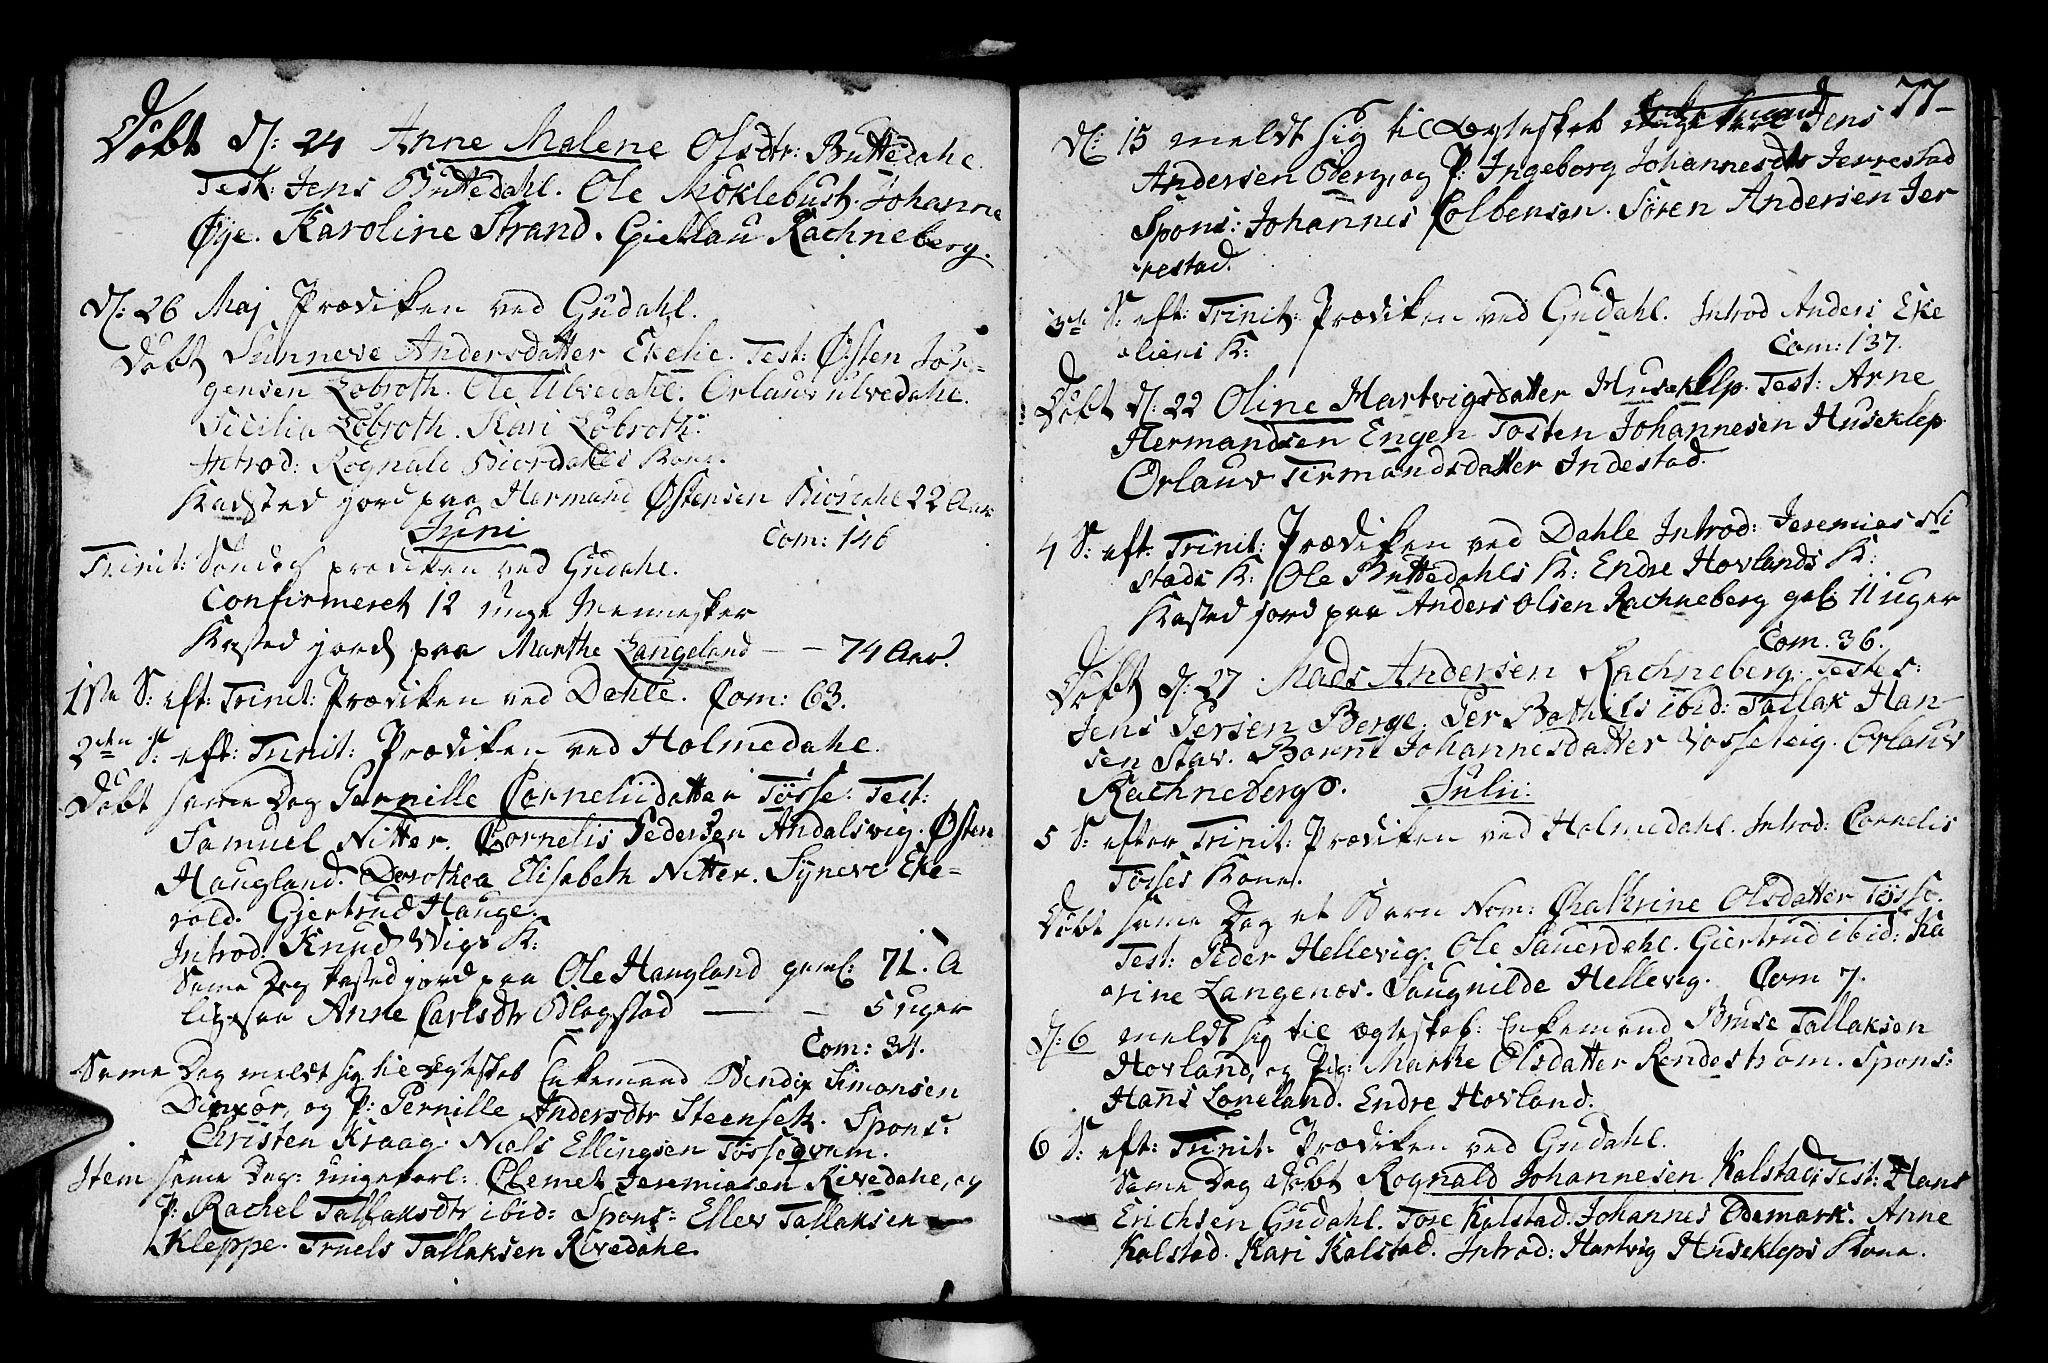 Döbt d: 24 Anne Malene Olsdtr: Büttedahl.
Test: Jens Büttedahl. Ole Möklebust. Johanne
Øye. Karoline Strand. Giehlau Rachneberg.
d: 26 Maj Prædiken ved Gudahl.
Döbt Sunneve Andersdatter Ekelie. Test: Østen Jör-
gensen Löbroth. Ole Ulvedahl. Orlauv Ulvedahl.
Sicilia Löbroth. Kari Löbroth.
Introd: Rognald Biordahls Kone.
Kasted jord paa Hermand Østensen Biordahl 22 Aar
Juni
Com: 146
Trinit: Söndag prædiken ved Gudahl.
Confirmeret 12 unge Mennesker
Kasted jord paa Marthe Langeland — — 74 Aar.
1ste S: eft: Trinit: Prædiken ved Dahle. Com: 63.
2den S: eft: Trinit: Prædiken ved Holmedahl.
Döbt same Dag Pernille Corneliidatter Tösse. Test:
Samuel Nitter. Cornelis Pedersen Andalsvig. Østen
Haugland. Dorothea Elisabeth Nitter. Syneve Eke-
vold. Gjertrud Hauge.
Introd: Knud Wigs K:
Same Dag kasted jord paa Ole Haugland gaml: 71. A
ligesaa Anne Carlsdtr Odlogstad — — 5 uger
Com: 34.
Same Dag meldt sig til Egteskab Enkemand Bendix Simonsen
Dingör, og P: Pernille Andersdtr Steensek. Spons:
Christen Kraag. Niels Ellingsen Tössegvam.
Item same Dag: ungekarl: Clemet Jeremiasen Rivedahl, og
P: Rachel Tallaksdtr ibid: Spons: Ellev Tallaksen
Kleppe. Truels Tallaksen Rivedahl.
77
d: 15 meldt sig til Egteskab Enkemand Jens
Andersen Oberg, og P: Ingeborg Johannesdtr Jerrestad
Spons: Johannes Colbensen. Sören Andersen Jer
restad.
3die S: eft: Trinit: Prædiken ved Gudahl. Introd Anders Eke
liens K:
Com: 137.
Döbt d: 22 Oline Hartvigsdatter Huseklep. Test: Arne
Hermandsen Engen Tosten Johannesen Huseklep.
Orlauv Tormandsdatter Indestad.
4 S: eft: Trinit: Prædiken ved Dahle Introd: Jeremias Ni
stads K: Ole Büttedahls K: Endre Hovlands K:
Kasted jord paa Anders Olsen Rachneberg gal: 11 uger
Com. 36.
Döbt d: 27 Mads Andersen Rachneberg. Testes:
Jens Persen Berge. Per Bothils ibid: Tallak Han-
sen Stav. Barni Johannesdatter Vosseteig. Orlauv
Rachneberg.
Julii.
5 S: efter Trinit: Prædiken ved Holmedahl. Introd: Cornelis
Tösses Kone.
Döbt same Dag et Barn Nom: Chathrine Olsdatter Tösse.
Test: Peder Hellevig. Ole Sauerdahl. Giertrud ibid: Ka
trine Langenos. Saugnilde Hellevig. Com 7.
d: 6 meldt sig til Ægteskab: Enkemand Brüse Tallaksen
Hovland, og Pig: Marthe Olsdatter Rendeström. Spons:
Hans Loneland. Endre Hovland.
6 S: eft: Trinit: Prædiken ved Gudahl.
Same Dag döbt Rognald Johannesen Kalstad. Test: Hans
Erichsen Gudahl. Tore Kalstad. Johannes Ødemark. Anne
Kalstad. Kari Kalstad. Introd: Hartvig Husekleps Kone.